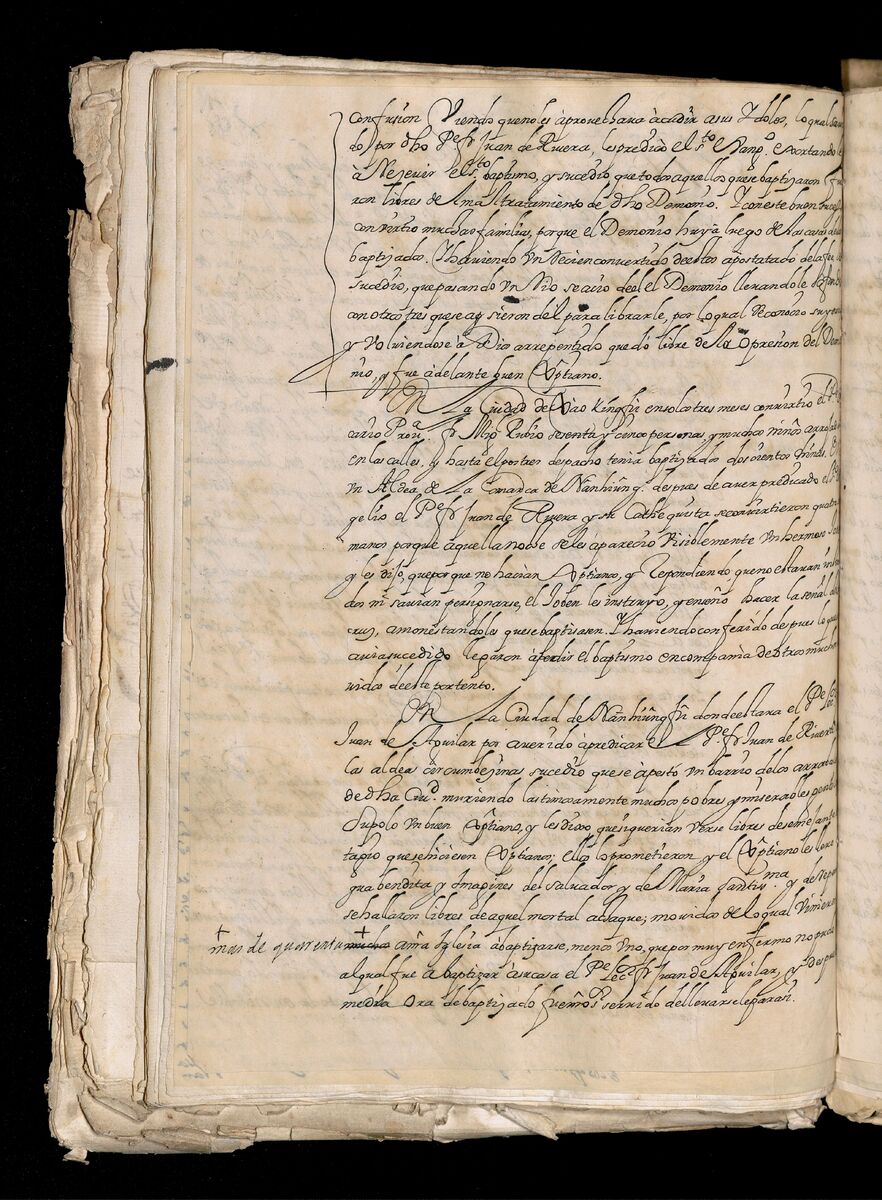 confusion Viendo que no les aprovechava acudir a sus Ydolos, lo qual
do por dho Pe fr Juan de Rivera, les predicò el sto Evangº. exortando
à Recevir el Sto. baptismo, y sucediò que todos aquellos que se baptizaron
ron libres de mal tratamiento de dho Demonio. Y con este buen
convirtio muchas familias, porque el Demonio huyà luego de las casas de
baptizados. Y haviendo Vn Recien convertido de ellos apostatado de la fee
sucediò, que pasando Vn Rio se aciò de el el Demonio llevandole
con otros tres que se aysieron dèl para librarle, por lo qual Reconocio su
y Volviendose à Dios arrepentido quedò libre de la opresion del
nio, y fue adelante buen Xptiano.
En La Ciudad de Xào Kingfù en solos tres meses convirtio el
cario Prova. fr Migl Rubio sesenta y cinco personas, y muchos niños
en las calles, y hasta el postrer despacho tenia baptizados dos cientos
Vn Aldea de La Comarca de Nanhiûng. despues de aver predicado el
gelio el Pe fr Juan de Rivera y su Cathequista se convirtieron quatro
manos porque aquella noche se les apareciò Visiblemente Vn hermoso
y les dijo, que por que no hacian Xptianos, y Respondiendo, que no estavan
dos ni savian persignarse, el Joben les instruyò, y enseñò hacer la señal de la
cruz, amonestandoles que se baptisasen. Y haviendo conferido despues lo que
avia sucedido llegaron à pedir el baptismo en compania de otros muchos
vidos de este portento.
En La Ciudad de Nanhiûngfù donde estava el Pe
Juan de Aguilar por aver ido à predicar el Pe. fr Juan de Rivera
las aldeas circumbezinas sucediò que se apestò Vn barrio de los
de dha Ciud. muriendo lastimosamente muchos pobres y miserables
Supolo Vn buen Xptiano, y les dixo que si querian verse libres de semejante
tagio que se hiciesen Xptianos; Ellos lo prometieron y el Xptiano les
gua bendita y Imagines del Salvador y de Maria santissma. y de
se hallaron libres de aquel mortal achaque; movidos de lo qual Vinieron
mas de quarenta muchos a nra Iglesia a baptizarse, menos Vno, que por muy enfermo no
al qual fue à baptizar à su casa el Pe Lecr fr Juan de Aguilar, y
media Ora de baptizado fue nro Sr servido de llevarsele para si.